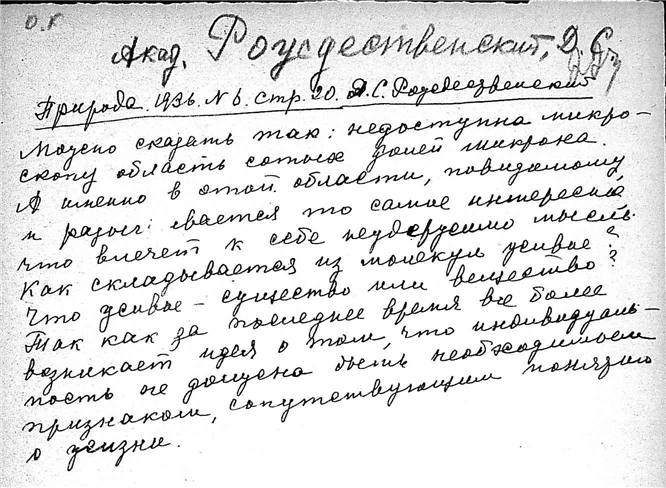 О.К
Акад. Рождественский, Д. С.
Природа. 1936. № 6. стр. 20. Д. С. Рождественский
Можно сказать так: недоступна микро-
скопу область сотых долей микрона.
А именно в этой области, повидимому
и разыгрывается то самое интересное
что влечет к себе неудержимо мысль.
Как складывается из молекул живое?
Что живое – существо или вещество?
Так как за последнее время все более
возникает идея о том, что индивидуаль-
ность не должна быть необходимым
признаком, сопутствующим понятию
о жизни.